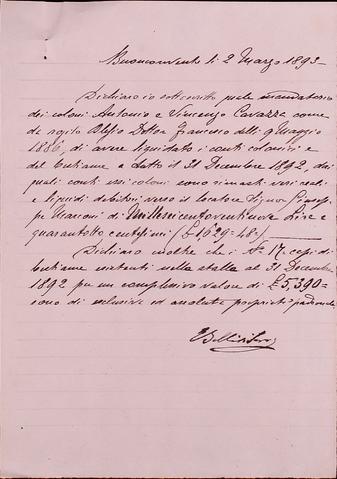 Buonconvento li 2 Marzo 1893
Dichiaro io sottoscritto quale mandatario
dei coloni Antonio e Vincenzo Cavazza come
da rogito Dotto. Francesco delli 9 Maggio
1886, di avere liquidato i conti colonici e
del bestiame a tutto il 31 Decembre 1892, dai
quali conti essi coloni sono rimasti veri reali
e liquidi debitori verso il locatore Signor
Marconi di Milleseicentoventinove Lire e
quarantotto centesimi (£ 1629=48=)
Dichiaro inoltre che i N° 17 capi di
bestiame esistenti nella stalla al 31 Decembre
1892 per un complessivo valore di £ 5,390=
sono di esclusiva ed assoluta proprietà padronale